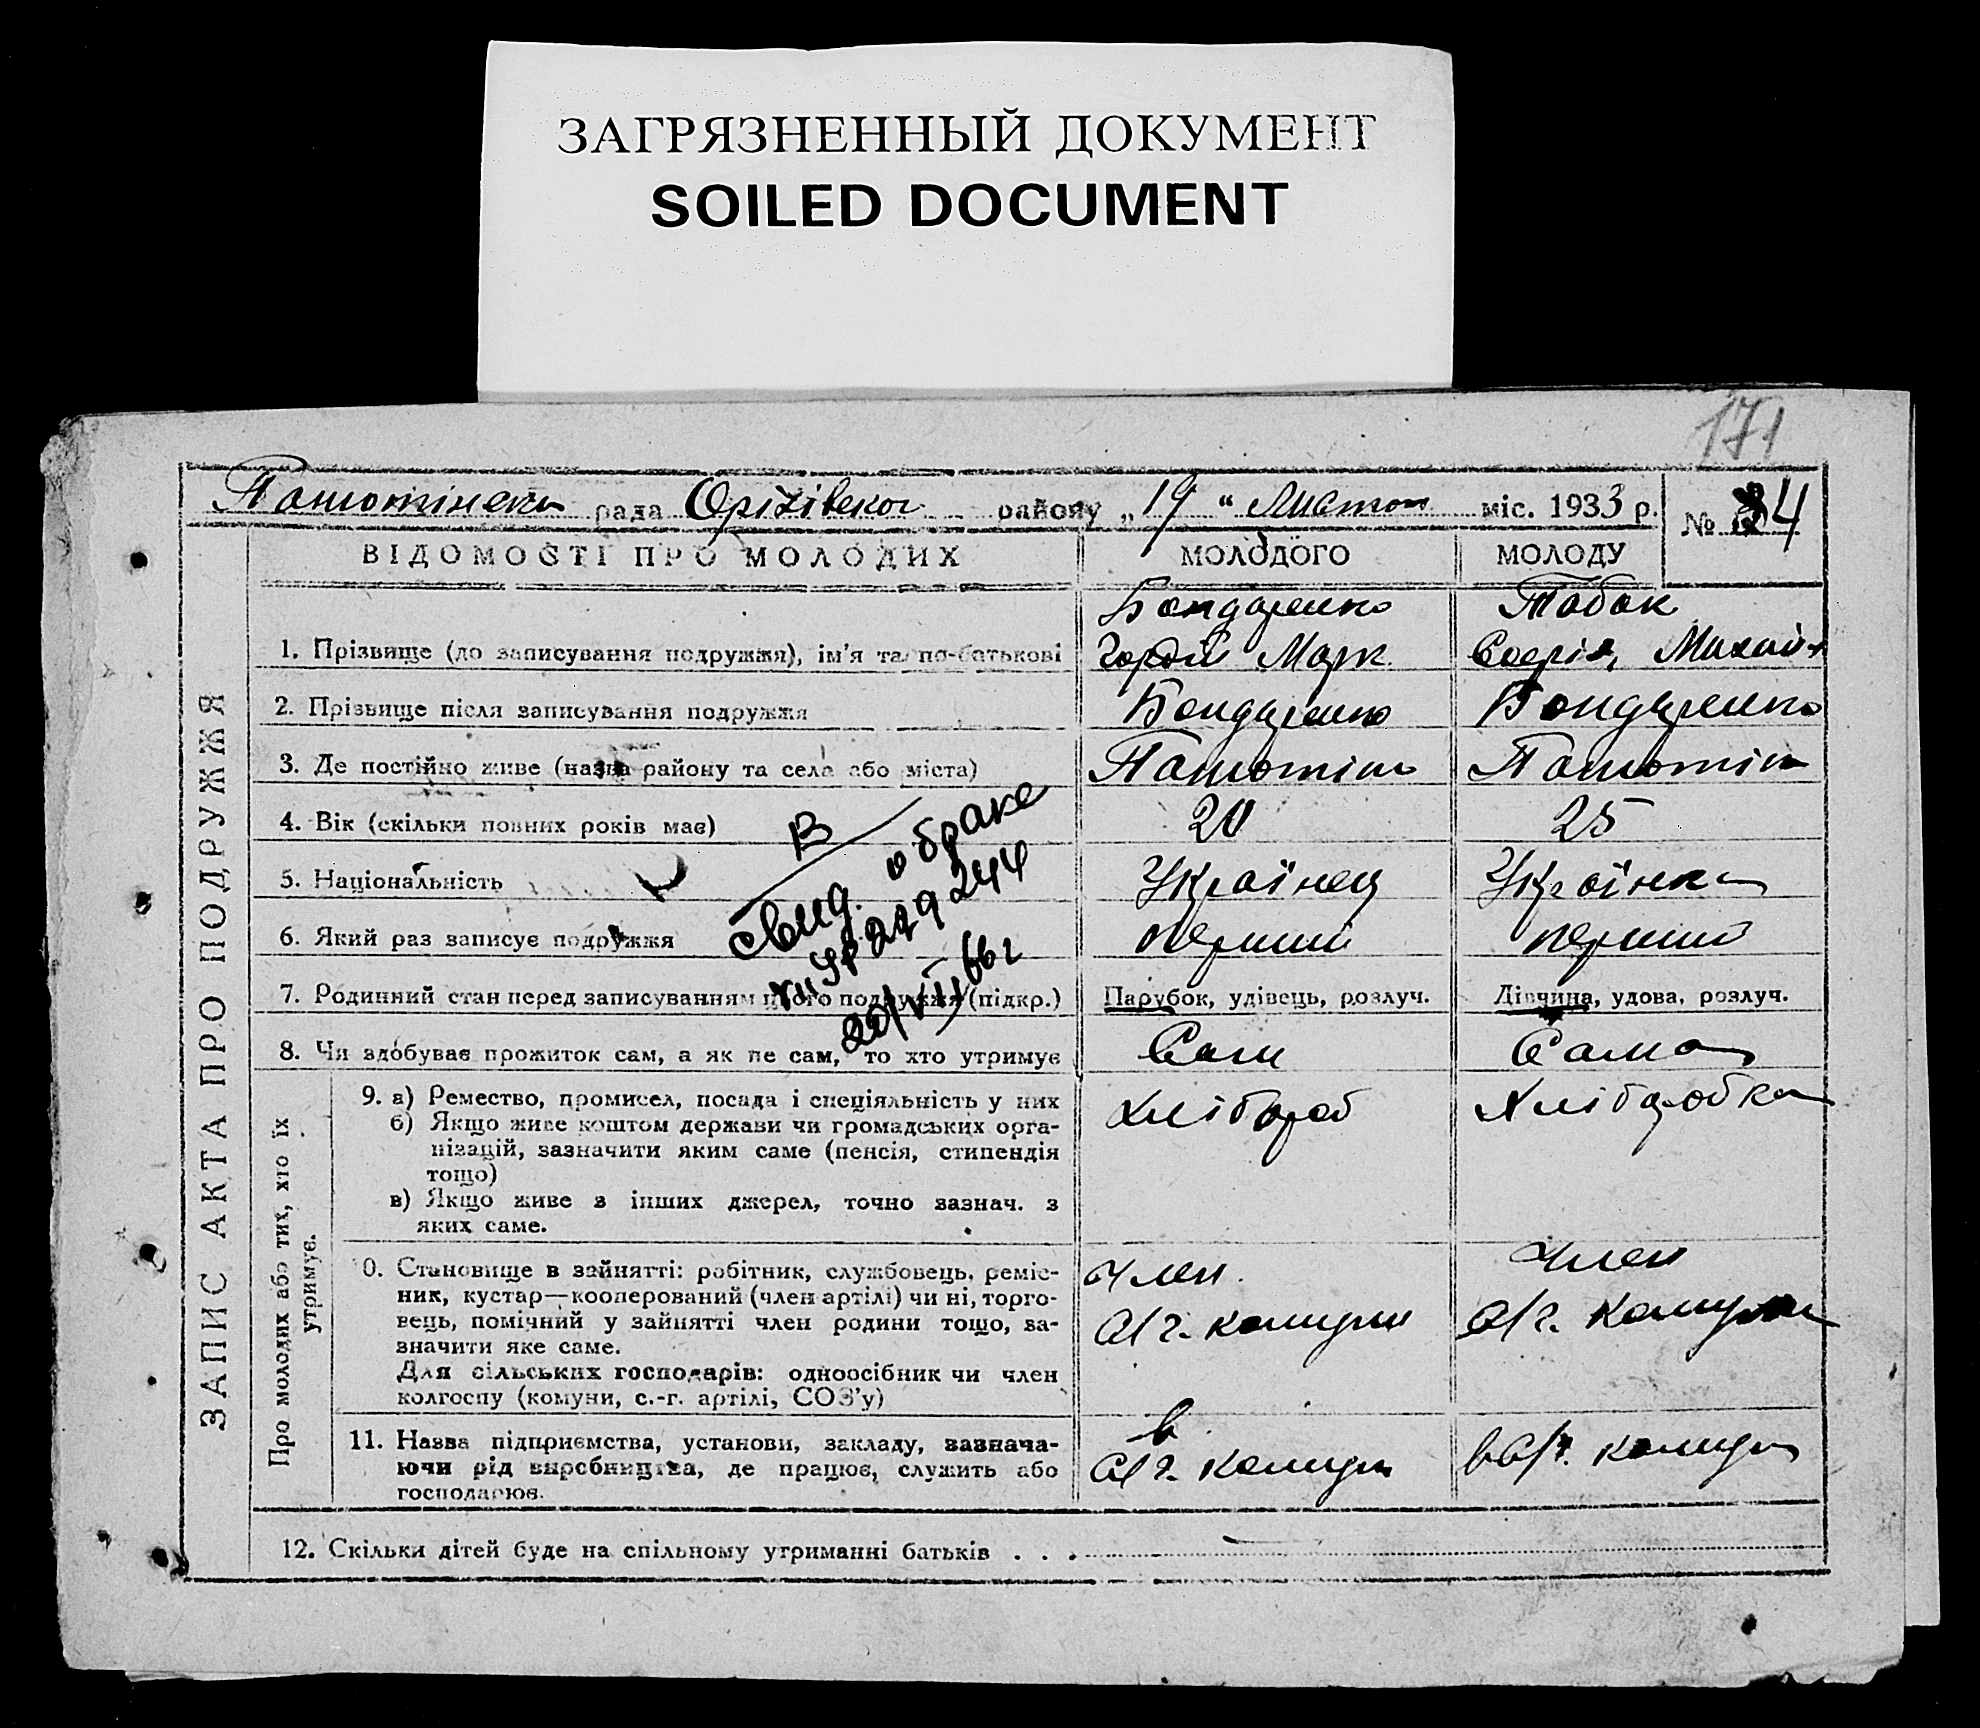 ЗАГРЯЗНЕННЫЙ ДОКУМЕНТ
SOILED DOCUMENT
171
рада Оріхівськог району „19“ Листоп міс. 1933 р.
№ 34
ЗАПИС АКТА ПРО ПОДРУЖЖЯ
ВІДОМОСТІ ПРО МОЛОДИХ МОЛОДОГО МОЛОДУ
Бондаренко Табак
1. Прізвище (до записування подружжя), ім'я та по-батькові Гордій Марк Михайл
2. Прізвище після записування подружжя Бондаренко Бондаренко
3. Де постійно живе (назва району та села або міста)
4. Вік (скільки повних років має) 20 25
5. Національність Українец Українка
6. Який раз записує подружжя перший перший
7. Родинний стан перед записуванням цього подружжя (підкр.) Парубок, удівець, розлуч. Дівчина, удова, розлуч.
8. Чи здобуває прожиток сам, а як не сам, то хто утримує Сам Сама
В
свид. о браке
229244
20/VII 66 г
Про молодих або тих, хто їх утримує.
9. а) Ремество, промисел, посада і спеціяльність у них Хлібороб Хліборобка
б) Якщо живе коштом держави чи громадських орга-
нізацій, зазначити яким саме (пенсія, стипендія
тощо)
в) Якщо живе з інших джерел, точно зазнач. з
яких саме.
0. Становище в зайнятті: робітник, службовець, реміс- Член Член
ник, кустар—кооперований (член артілі) чи ні, торго-
вець, помічний у зайнятті член родини тощо, за- С/г. комуни С/г. комуни
значити яке саме.
Для сільських господарів: одноосібник чи член
колгоспу (комуни, с.-г. артілі, СОЗ'у)
11. Назва підприємства, установи, закладу, зазнача- в
ючи рід виробництва, де працює, служить або С/г. комуни в С/г. комуни
господарює.
12. Скільки дітей буде на спільному утриманні батьків . . . —